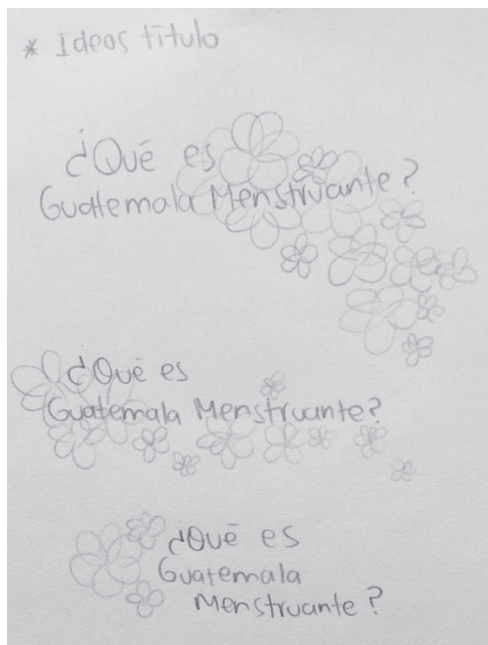 * Ideas título
¿Qué es
Guatemala Menstruante?
¿Qué es
Guatemala Menstruante?
¿Qué es
Guatemala
Menstruante?